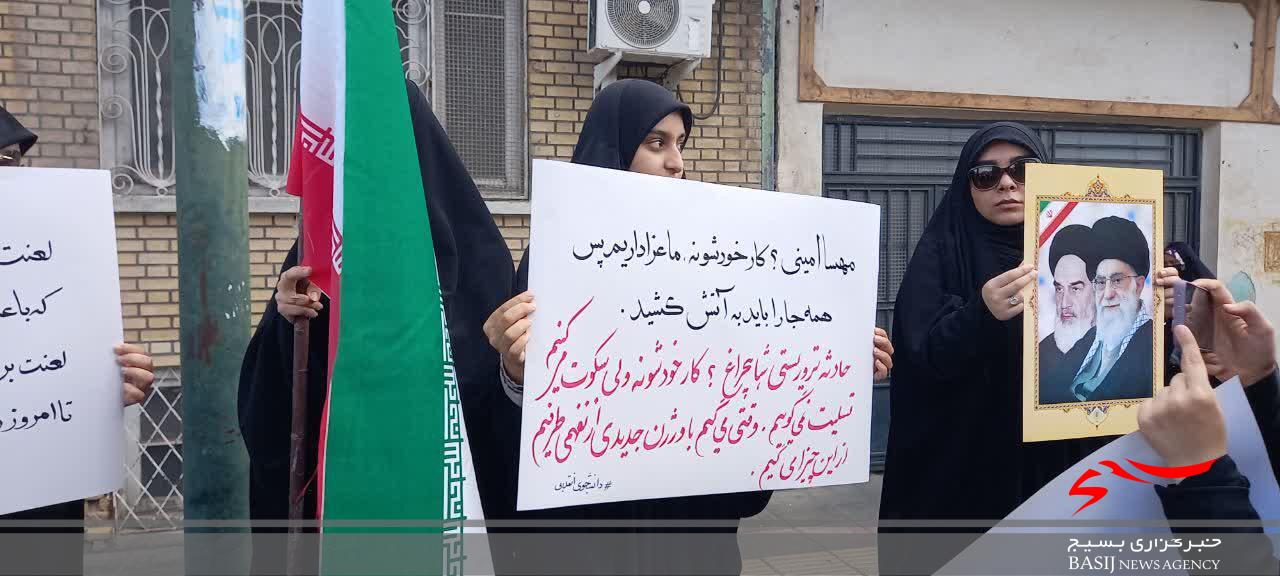 مهسا امینی؟ کار خودشونه، ما عزاداریم پس
همه جا را باید به آتش کشید.
حادثه تروریستی شاهچراغ؟ کار خودشونه ولی سکوت میکنیم
تسلیت نمی‌گوییم. وقتی می‌گیم با ورژن جدیدی از نفهمی طرفیم
از این چیزا می‌گیم.
#دانشجوی_انقلابی
لعنت
که با
لعنت بر
تا امروز
خبرگزاری بسیج
BASIJ NEWS AGENCY